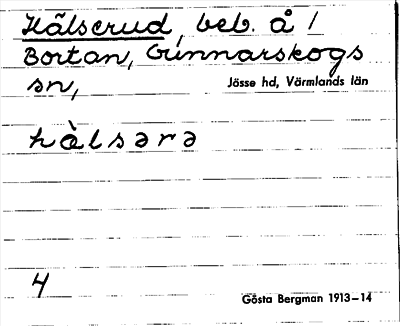 Hälserud, beb. å 1
Bortan, Gunnarskogs
sn,
Jösse hd, Värmlands län
hàlsərə
4
Gösta Bergman 1913–14